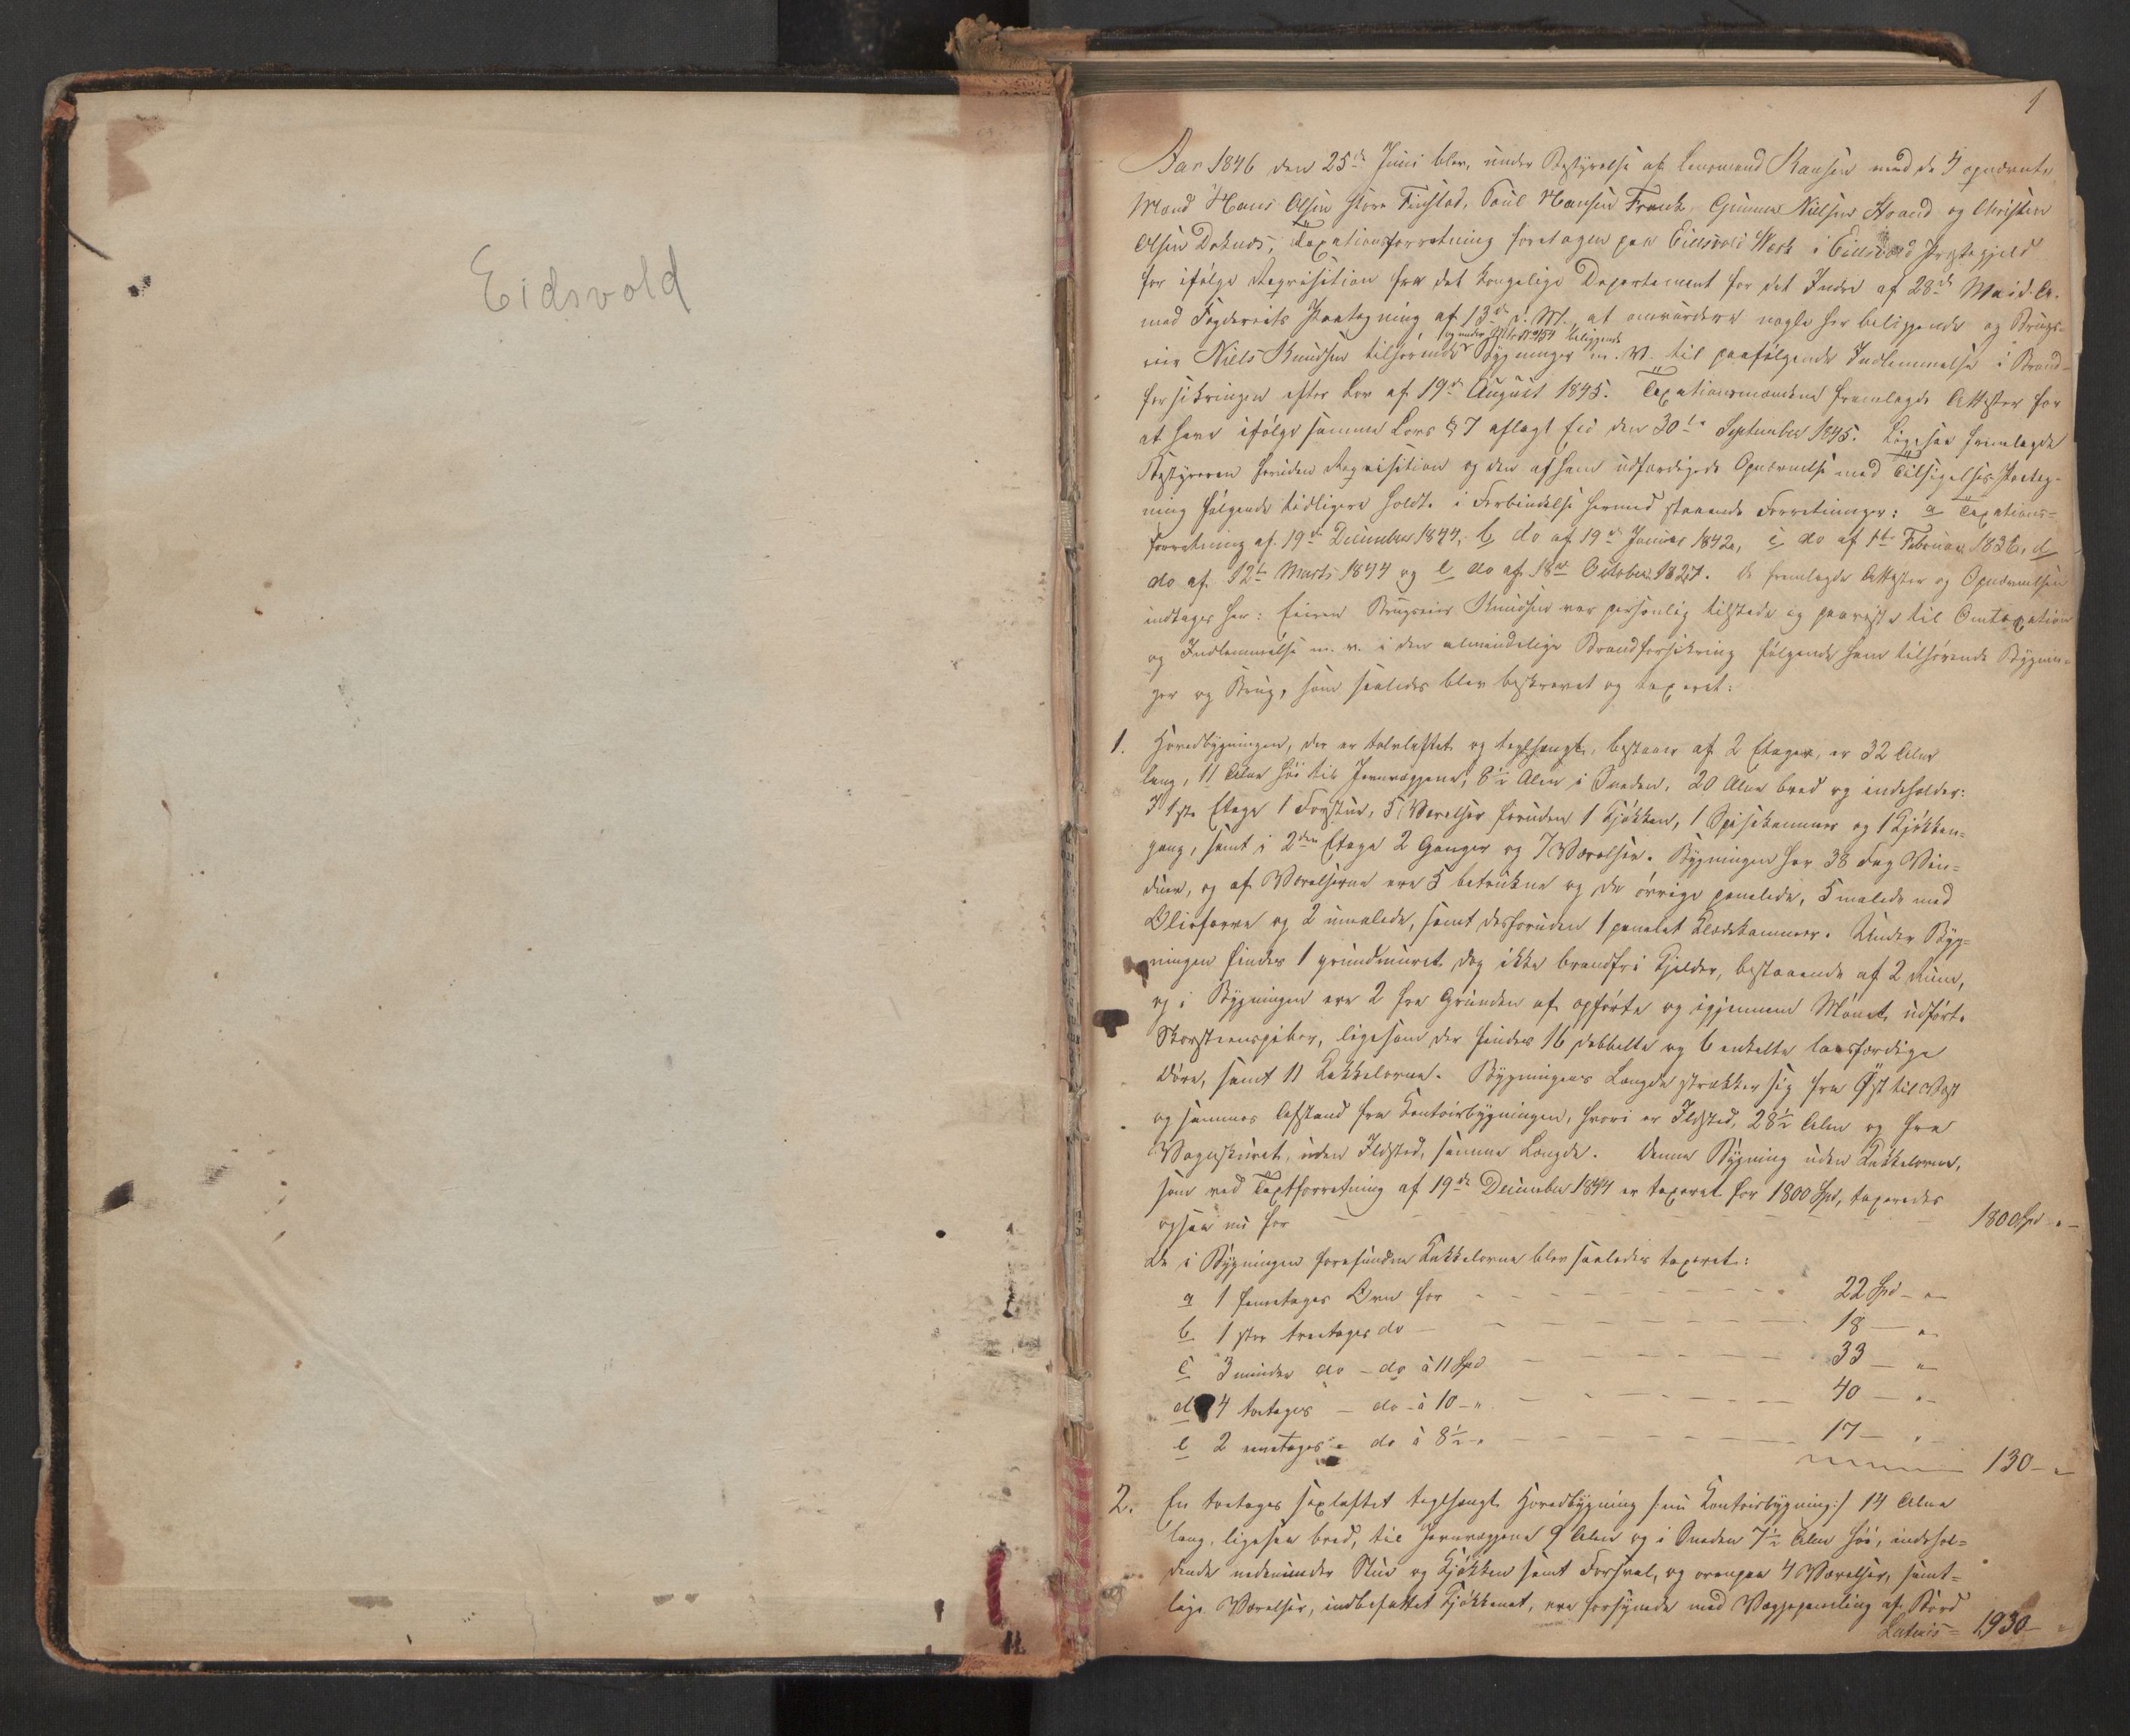 Eidsvold
1
Aar 1846 den 25de Juni blev, under Bestyrelse af Lensmand Kansen med de 4 opnævnte
Mænd Hans Olsen store Finstad, Poul Hansen Gunner Nielsen og Christen
Olsen Doknæs, Taxationsforretning foretagen paa Eidsvold Værk i Eidsvold Præstegjeld
for ifølge Reqvisition fra det kongelige Departement for det Indre af 28de Mai d. A.
med Fogderiets Paategning af 13de d. M. at omvurdere nogle her beliggende og Brugs-
eier Niels Knudsen tilhørende Bygninger m. V. til paafølgende Indlemmelse i Brand-
og under beliggende
forsikringen efter Lov af 19de August 1845. Taxationsmændene fremlagde Attester for
at have ifølge samme Lovs § 7 aflagt Eed den 30te September 1845. Ligesaa fremlagde
Bestyreren foruden Reqvisition og den af ham udfærdigede Opnævnelse med Tilsigelses Paateg-
ning følgende tidligere holdte i Forbindelse hermed staaende Forretninger: a Taxations-
forretning af 19de December 1844, b, do af 19de Januar 1842, c, do af 1ste Februar 1836, d
do af 12te Marts 1844 og e do af 18de October 1827. De fremlagde Attester og Opnævnelsen
indtages her: Eieren Brugseier Knudsen var personlig tilstede og paaviste til Omtaxation
og Indlemmelse m. v. i den almindelige Brandforsikring følgende ham tilhørende Bygnin-
ger og Brug, som saaledes blev beskrevet og taxeret:
1. Hovedbygningen, der er tolvloftet og teglhængt, bestaaer af 2 Etager, er 32 Alen
lang, 11 Alen høi til Jevnvæggene, 8½ Alen i Sneden, 20 Alen bred og indeholder:
I 1ste Etage 1 Forstue, 5 Værelser foruden 1 Kjøkken, 1 Spisekammer og 1 Kjøkken-
gang, samt i 2den Etage 2 Gange og 7 Værelser. Bygningen har 38 Fag Vin-
duer, og af Værelserne ere 5 betrukne og de øvrige panelede, 5 malede med
Oliefarve og 2 umalede, samt desforuden 1 panelet Klædekammer. Under Byg-
ningen findes 1 grundmuret dog ikke brandfri Kjelder, bestaaende af 2 Rum,
og i Bygningen ere 2 fra Grunden af opførte og igjennem Mønet udførte
Skorsteenspiber, ligesom der findes 16 dobbelte og 6 enkelte laasfærdige
Døre, samt 11 Kakkelovne. Bygningens Længde strækker sig fra Øst til Vest
og sammes Afstand fra Kontoirbygningen, hvori er Ildsted, 28½ Alen og fra
Vognskuret, uden Ildsted, samme Længde. Denne Bygning uden Kakkelovne,
som ved Taxtforretning af 19de December 1844 er taxeret for 1800 Spd, taxeredes
ogsaa nu for - - - 1800 Spd " -
De i Bygningen forefundne Kakkelovne blev saaledes taxeret:
a 1 femetages Ovn for - - - 22 Spd - " -
b 1 stor treetages do - - - 18 - "
c 3 mindre do - do à 11 Spd - - - 33 - "
d 4 toetages - do - à 10 - " - - - 40 - "
e 2 eenetages " do à 8½ " - - - 17 - "
130 - "
2. En toetages sexloftet teglhængt Hovedbygning /: nu Kontoirbygning :/ 14 Alen
lang, ligesaa bred, til Jevnvæggene 9 Alen og i Sneden 7½ Alen høi, indehol-
dende nedenunder Stue og Kjøkken samt Forsval, og ovenpaa 4 Værelser, samt-
lige Værelser, indbefattet Kjøkkenet, ere forsynede med Væggepaneling af Bord
Lateris = 1930 - "